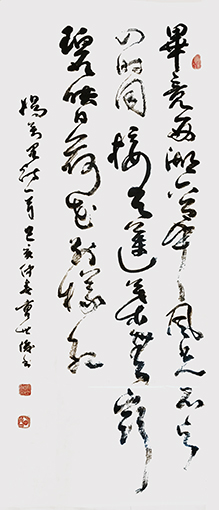 畢竟西湖六月中風光不与
四時同接天蓮葉無窮
碧映日荷花别樣紅
楊萬里詩一首己亥仲春書